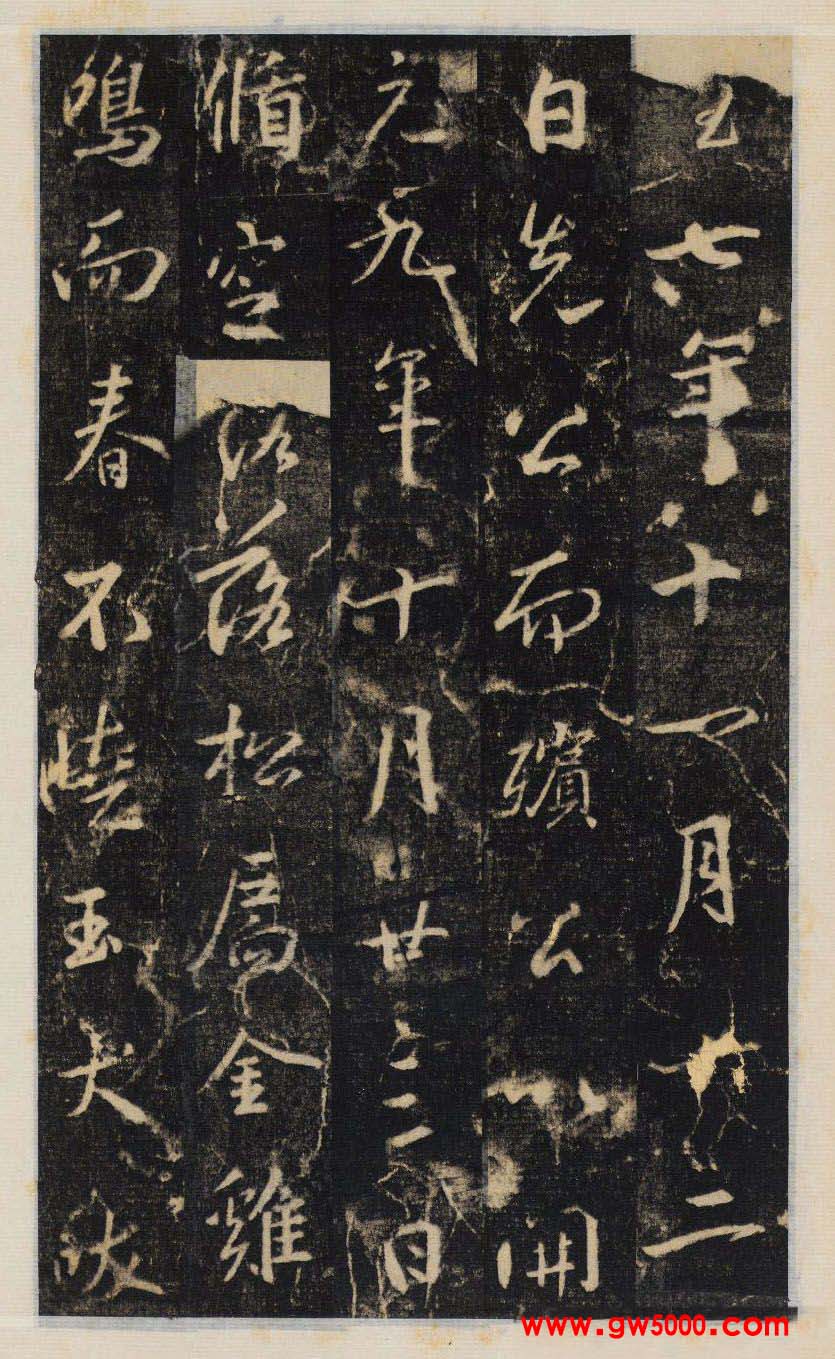 六年十一月二
日先公而殯公以開
元九年十月廿三日
空落松扃金雞
鳴而春不曉玉犬吠
www.gw5000.com